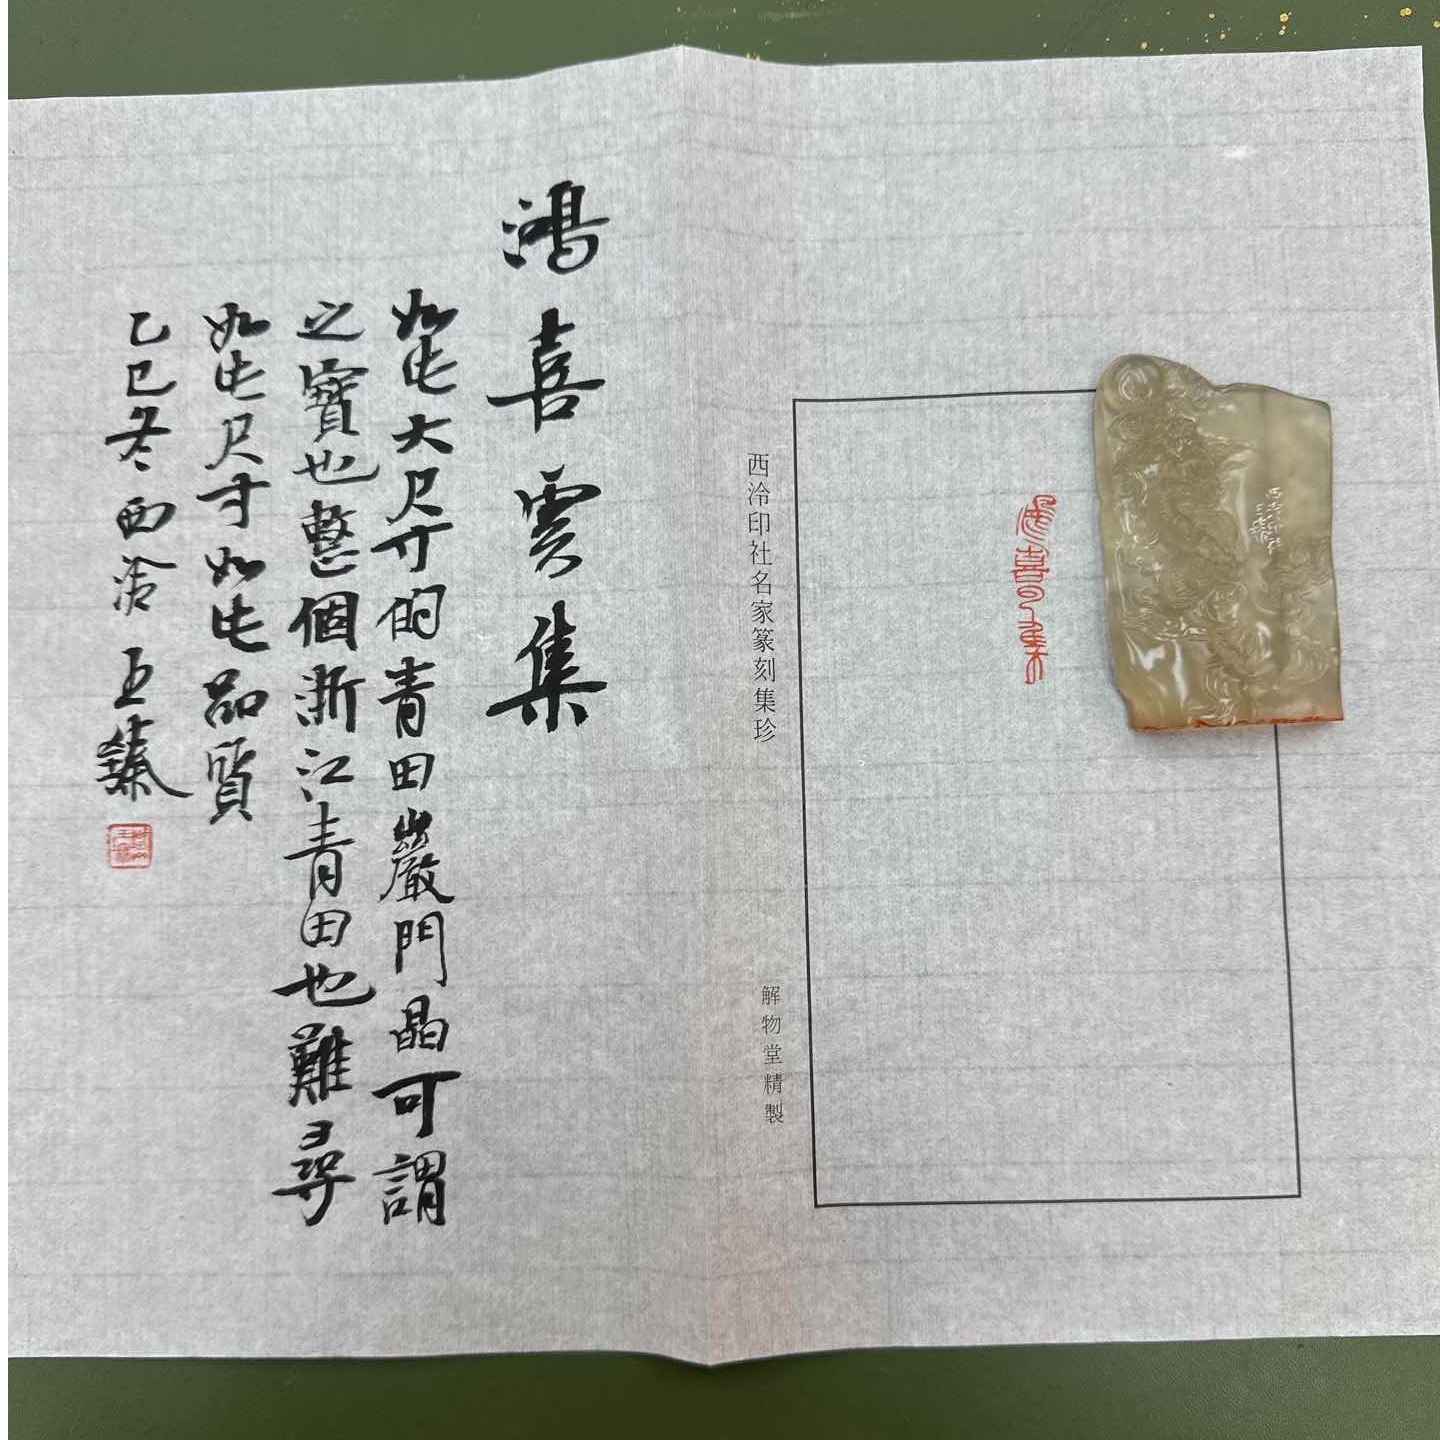 鴻喜雲集
如此大尺寸的青田巖門晶可謂
之寶也整個浙江青田也難尋
如此尺寸如此品質
乙巳冬西泠王臻
西泠印社名家篆刻集珍
解物堂精製